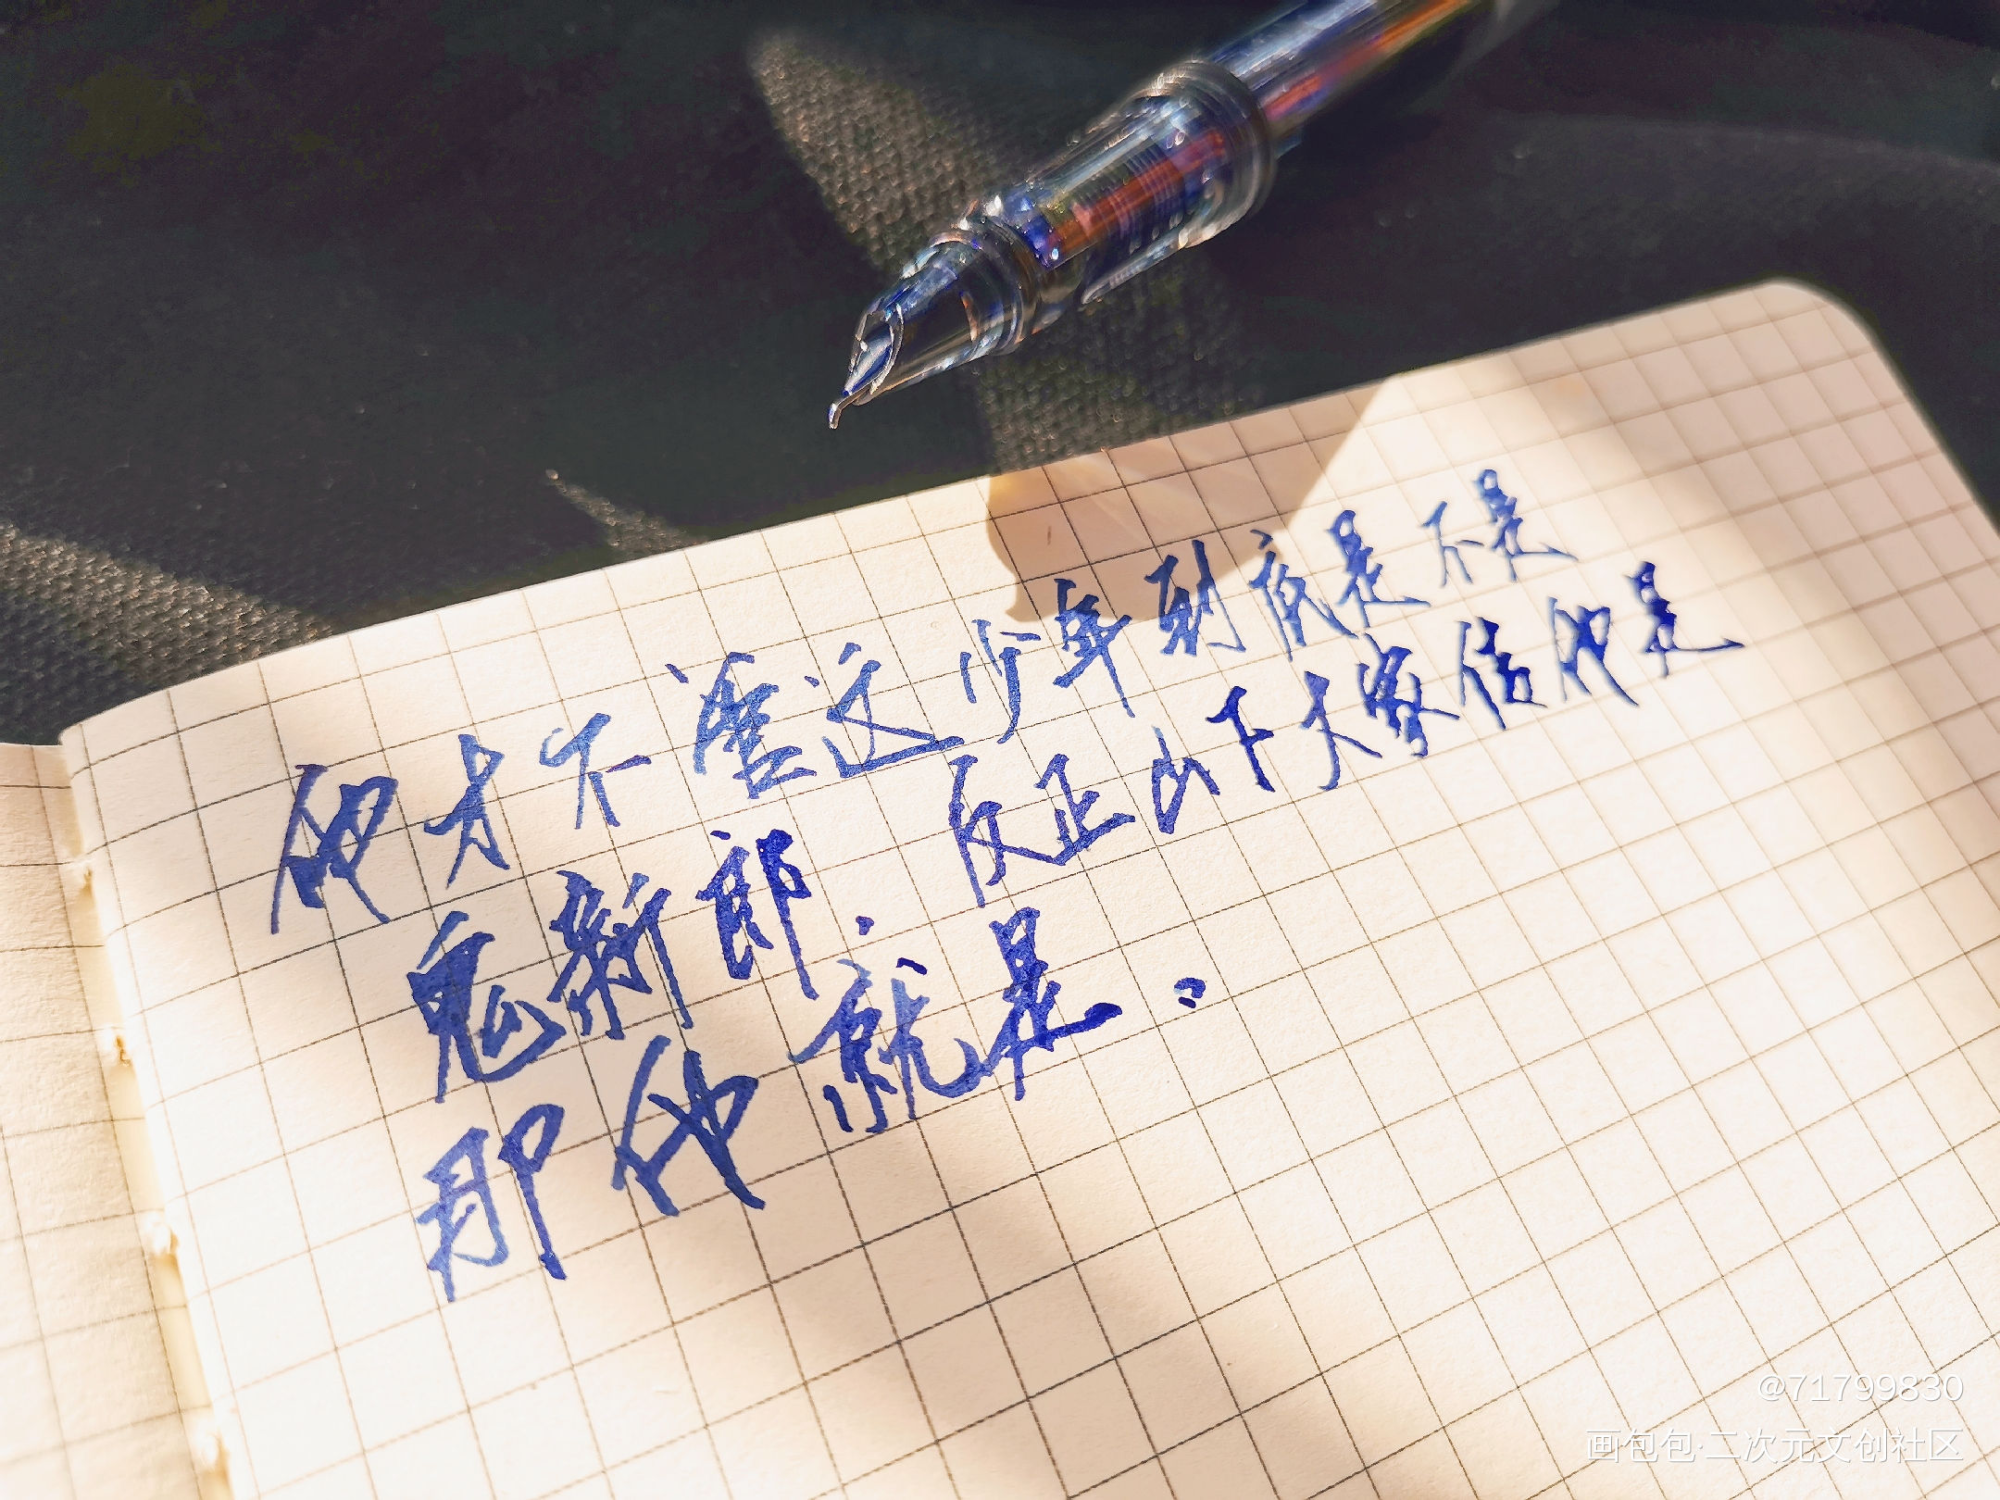 他才不管这少年到底是不是
鬼新郎．反正山下大家信他是
那他就是．
@71799830
画包包·二次元文创社区